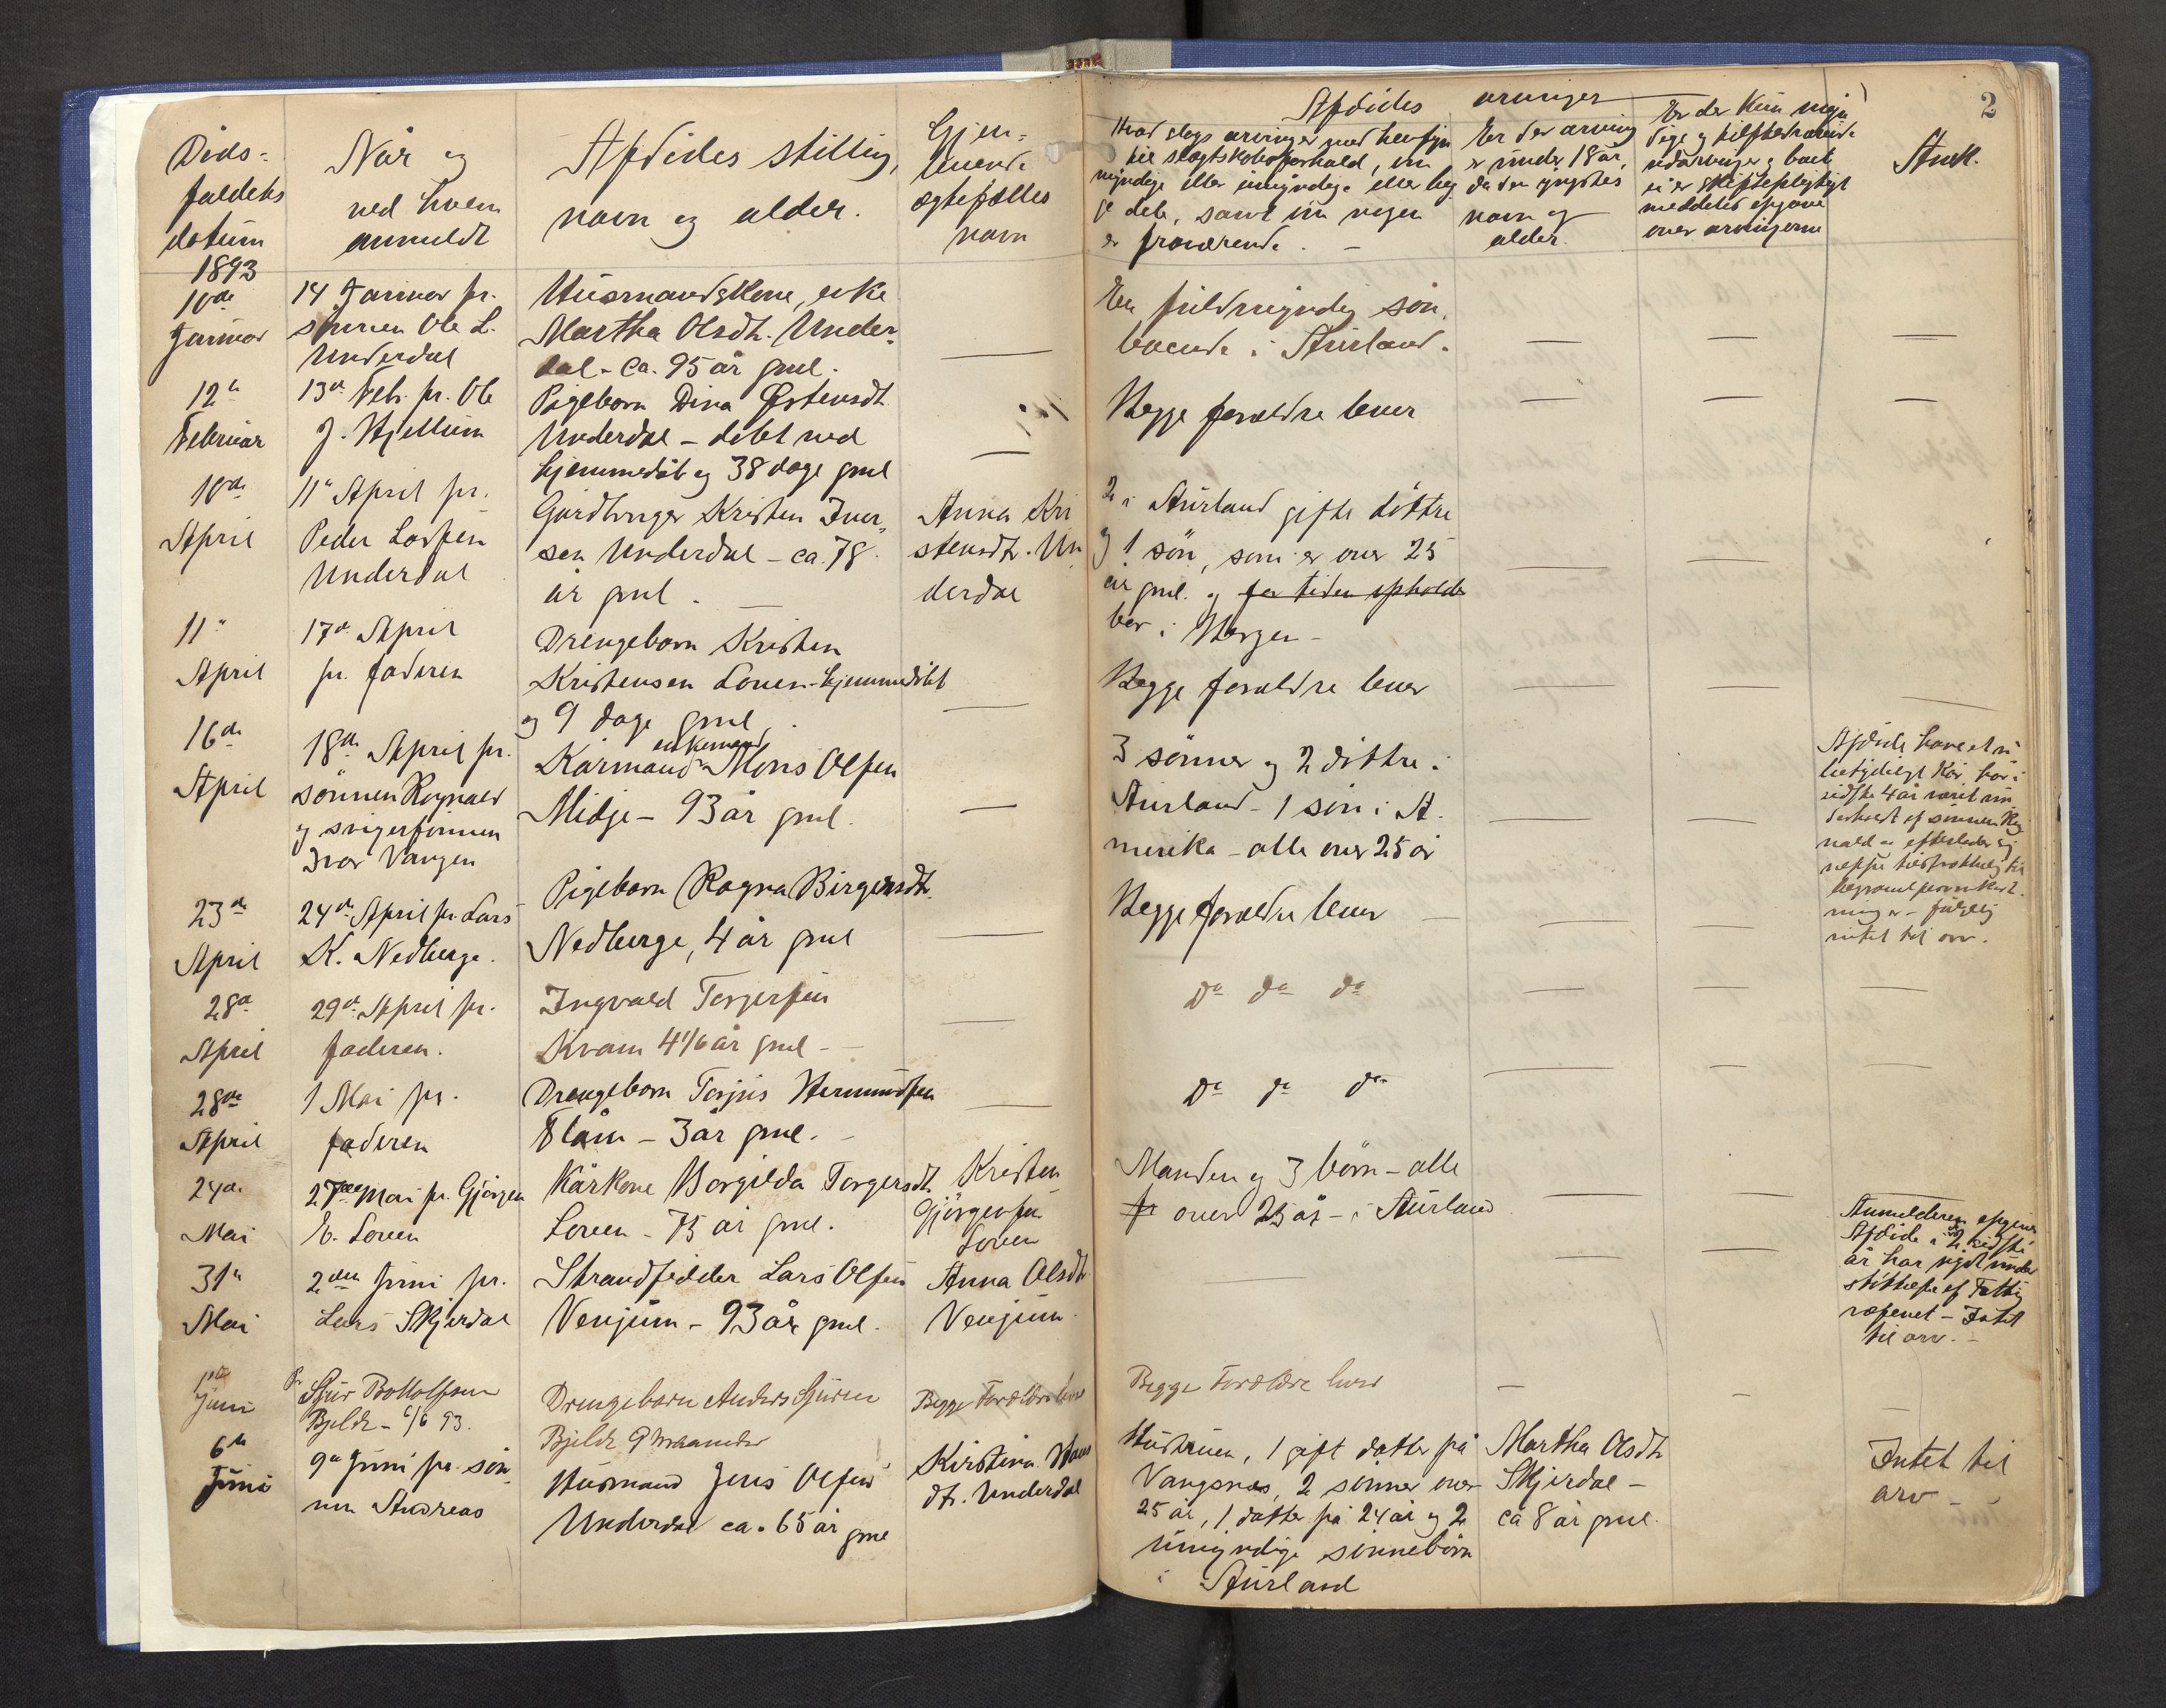 2
Döds-
faldets
datum
1893
Når og
ved hvem
anmeldt
Afdödes stilling,
navn og alder.
Gjen-
levende
ægtefælles
navn
Afdödes arvinger
Hvad slags arvinger med hensyn
til slægtskabsforhold, om
myndige eller umyndige eller beg
ge dele, samt om nogen
er fraværende. –
Er der arving
er under 18 år,
da den yngstes
navn og
alder.
Er der kun myn
dige og
udarvinger og boet
ei er skiftepligtigt
meddeles opgave
over arvingerne
Anm.
10de
Januar
14 Januar pr.
sönnen Ole L.
Underdal
Husmandskone, enke
Martha Olsdt. Under-
dal - ca. 95 år gml.
En fuldmyndig sön,
boende i Aurland.
12te
Februar
13de Feb. pr. Ole
J. Hjellum
Pigebarn Dina Østensdt
Underdal - döbt ved
hjemmedåb og 38 dage gml
Begge forældre lever
10de
April
11te April pr.
Peder Larsen
Underdal
Gårdbruger Kristen Iver-
sen Underdal - ca. 78
år gml. –
Anna Kri
stensdt. Un
derdal
2 i Aurland gifte döttre
og 1 sön, som er over 25
år gml. og for tiden opholder
bor i Bergen -
11te
April
17de April
pr. faderen
Drengebarn Kristen
Kristensen Loven - hjemmedöbt
og 9 dage gml.
Begge forældre lever
16de
April
18de April pr.
sönnen Rognald
og svigersönnen
Ivar Vangen
enkemand
Kårmand Mons Olsen
Midje - 93 år gml.
3 sönner og 2 döttre i
Aurland - 1 sön i A-
merika - alle over 25 år
Afdöde havet u-
betydeligt kår, har i
sidste 4 år været un
derholdt af sönnen Rog
nald og efterlader sig
neppe tilstrækkelig til
ninger - fölgelig
intet til arv.
23de
April
24de April pr. Lars
K. Nedberge.
Pigebarn Ragna Birgersdt.
Nedberge, 4 år gml
Begge forældre lever
28de
April
29de April pr.
faderen.
Ingvald Torgersen
Kvam 4 1/6 år gml -
Do do do
28de
April
1 Mai pr.
faderen
Drengebarn Torjus Hermundsen
Flåm - 3 år gml. -
Do do do
24de
Mai
27de Mai pr. Gjörgen
E. Loven
Kårkone Borgilda Torgersdt.
Loven - 75 år gml.
Kristen
Gjörgensen
Loven
Manden og 3 börn - alle
over 25 år - i Aurland
31te
Mai
2den Juni pr.
Lars Skjerdal
Strandsidder Lars Olsen
Venjum - 93 år gml.
Anna Olsdt
Venjum
Anmelderen opgiver
Afdöde i de 2 sidste
år har nydt under
stöttelse af Fattig
væsenet - Intet
til arv. -
1ste
Juni
Pr. Sjur Bottolfsen
Bjelde - 6/6 93.
Drengebarn Anders Sjursen
Bjelde 9 maaneder
Begge Forældre lever
Begge Forældre lever
6te
Juni
9de Juni pr. sön
nen Andreas
Husmand Jens Olsen
Underdal ca. 65 år gml
Kirstina Hans
dt. Underdal
Hustruen, 1 gift datter på
Vangsnes, 2 sönner over
25 år, 1 datter på 24 år og 2
umyndige sönnebörn
i Aurland
Martha Olsdt
Skjerdal -
ca 8 år gml.
Intet til
arv -